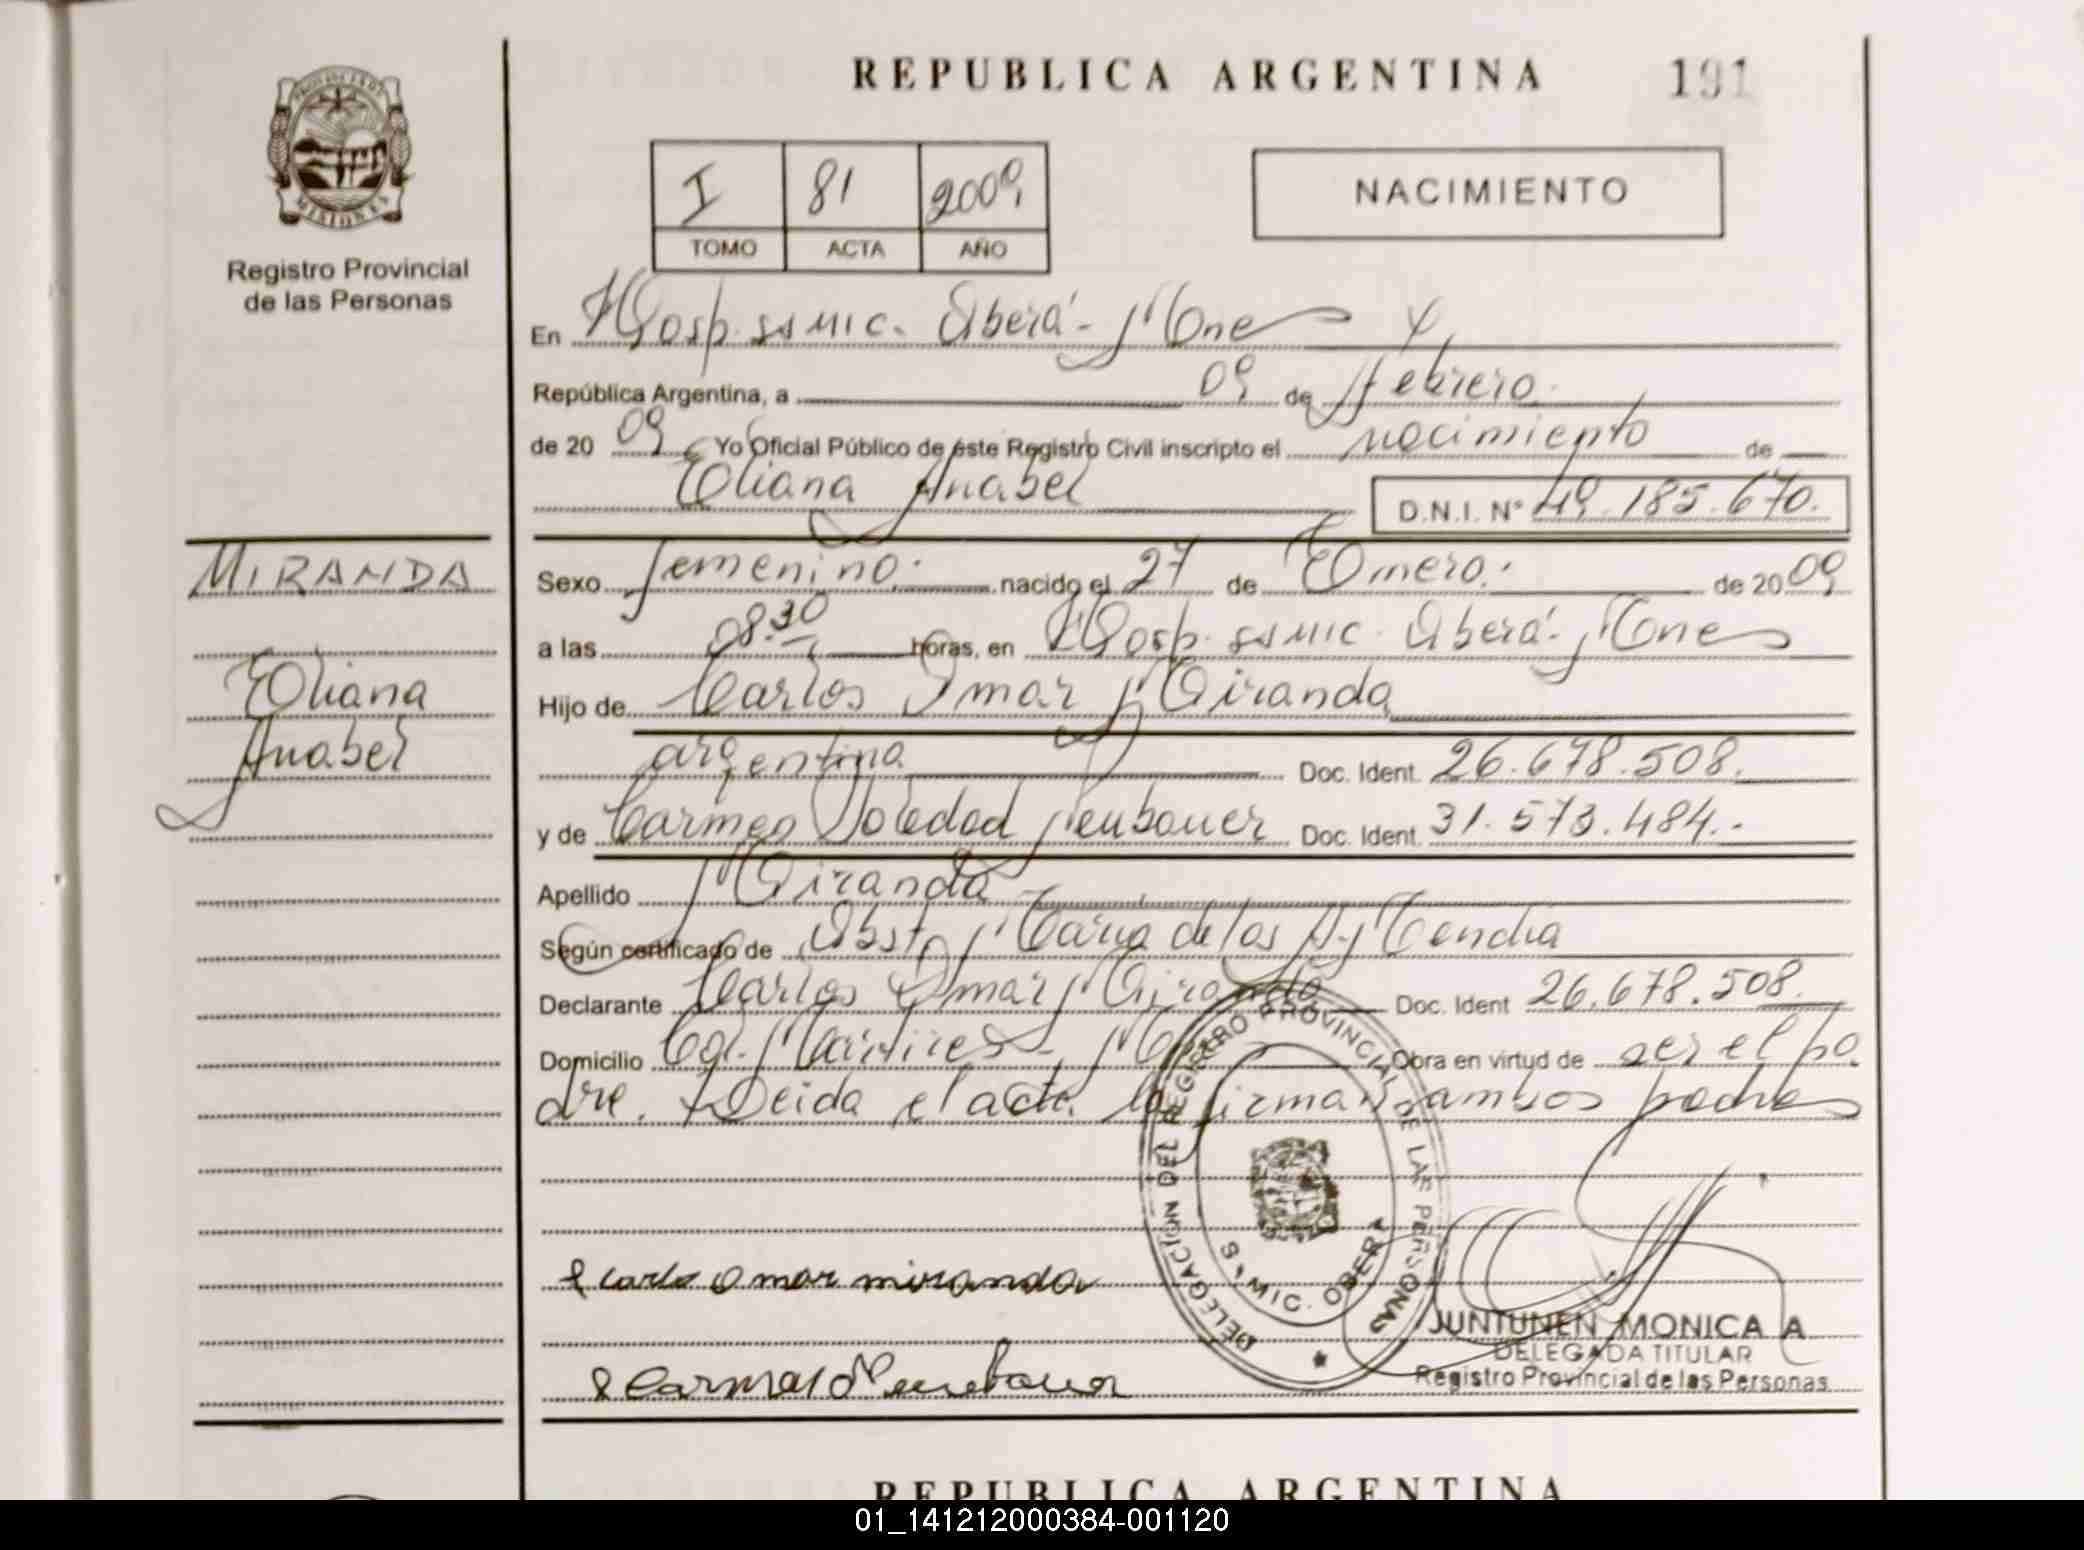 REPUBLICA ARGENTINA 191
PROVINCIA DE
MISIONES
Registro Provincial
de las Personas
I 81 2009
TOMO ACTA AÑO
NACIMIENTO
En Hosp. SAMIC. Oberá - Mnes y
República Argentina, a 09 de febrero
de 20 09 Yo Oficial Público de éste Registro Civil inscripto el nacimiento de
Eliana Anabel D.N.I. Nº 49.185.670.
MIRANDA
Eliana
Anabel
Sexo femenino. nacido el 27 de Enero. de 20 09
a las 08.30 horas, en Hosp. SAMIC. Oberá - Mnes
Hijo de Carlos Omar Miranda
argentina Doc. Ident. 26.678.508.
y de Carmen Soledad Neubauer Doc. Ident. 31.573.484.-
Apellido Miranda
Según certificado de Obst. María de los A. Mendia
Declarante Carlos Omar Miranda Doc. Ident 26.678.508.
Domicilio Col. Mártires - Obra en virtud de ser el pa
dre. Leida el acta la firman ambos padres
Carlos Omar miranda
Neubauer
DELEGACION DEL REGISTRO PROVINCIAL DE LAS PERSONAS
S.A.MIC. OBERA
JUNTUNEN MONICA A
DELEGADA TITULAR
Registro Provincial de las Personas
REPUBLICA ARGENTINA
01_141212000384-001120